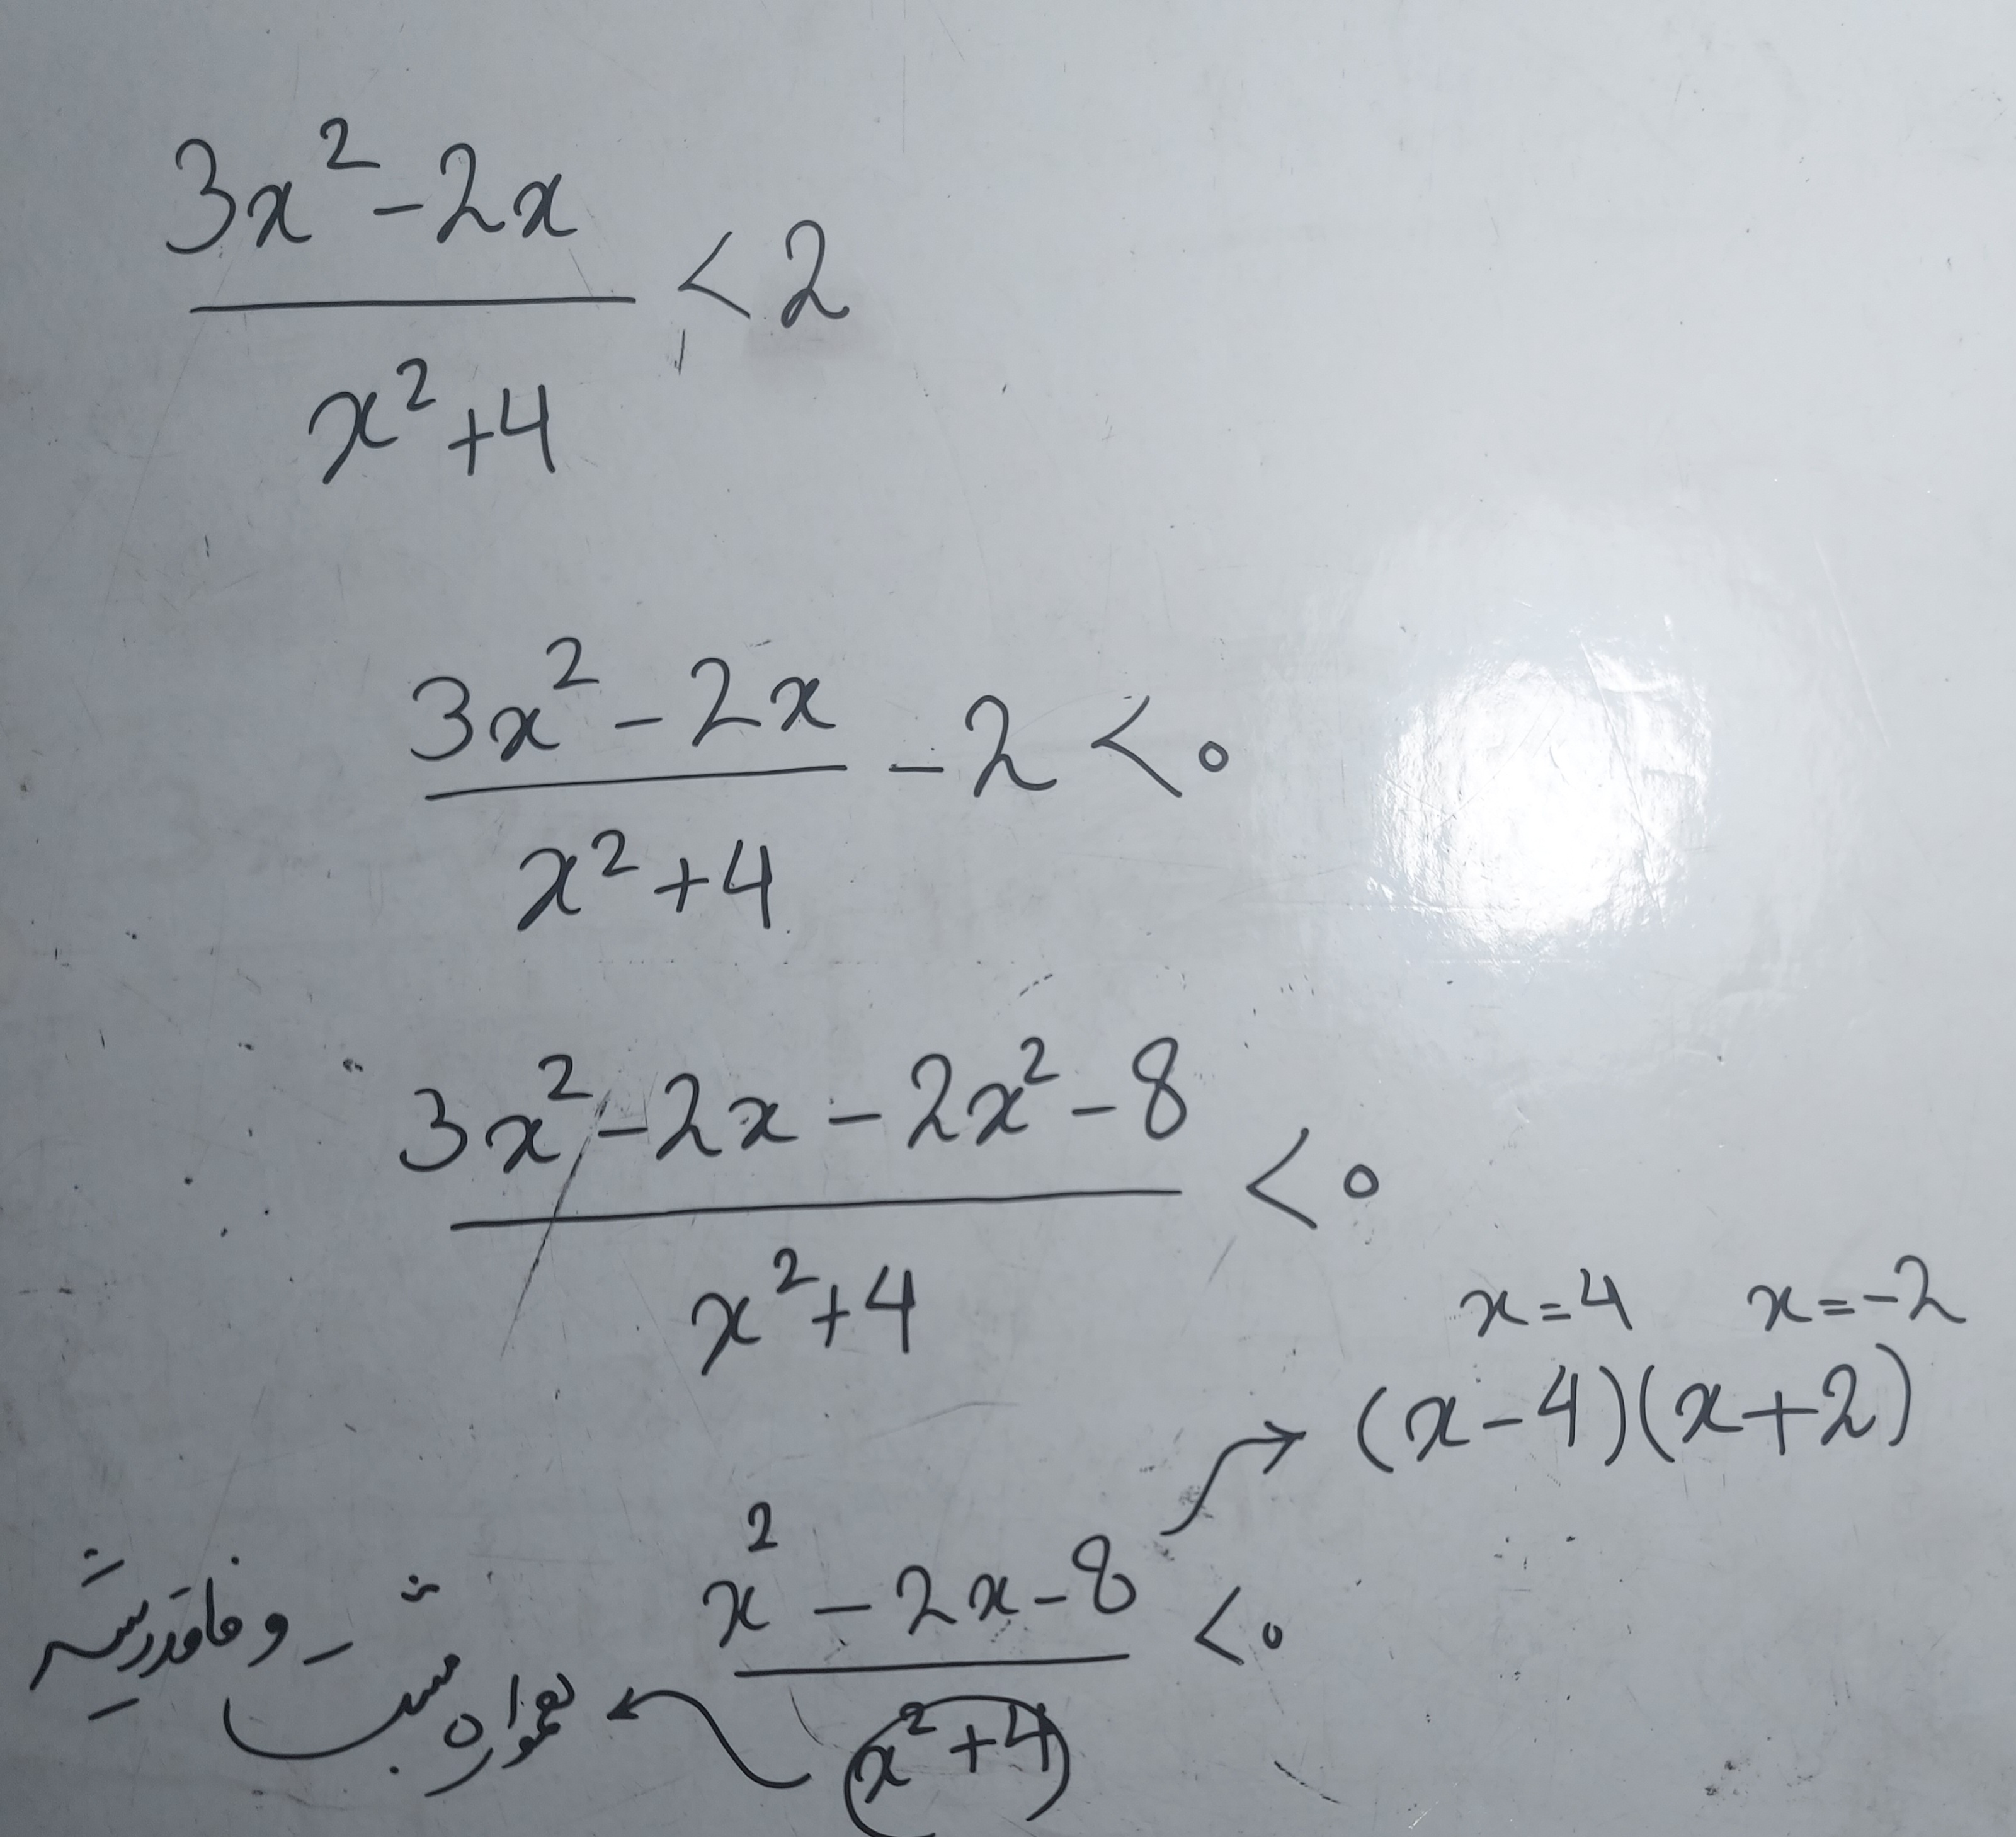 3x² - 2x
x² + 4
< 2
3x² - 2x
x² + 4
- 2 < 0
3x² - 2x - 2x² - 8
x² + 4
< 0
x = 4 x = -2
(x - 4)(x + 2)
x² - 2x - 8
(x² + 4)
< 0
همواره مثبت و فاقد ریشه